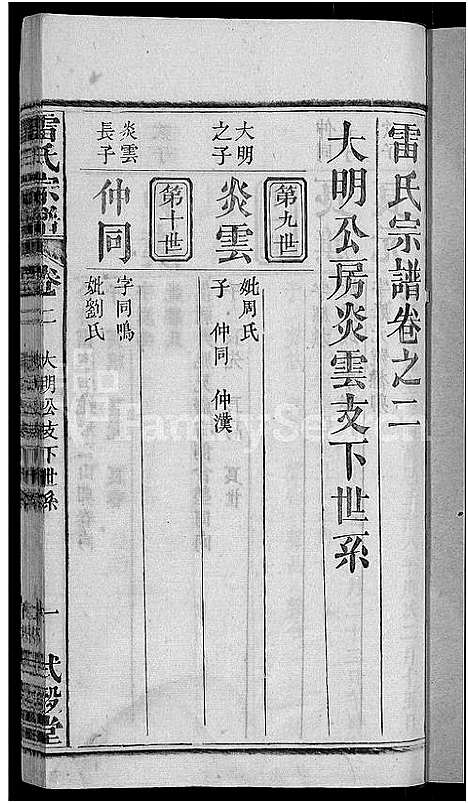 雷氏宗譜卷之二
大明公房炎雲支下世系
第九世
大明之子
炎雲
妣周氏
子 仲同 仲漢
第十世
炎雲長子
仲同
字同鳴
妣劉氏
雷氏宗譜 卷二 大明公支下世系 一
FamilySearch